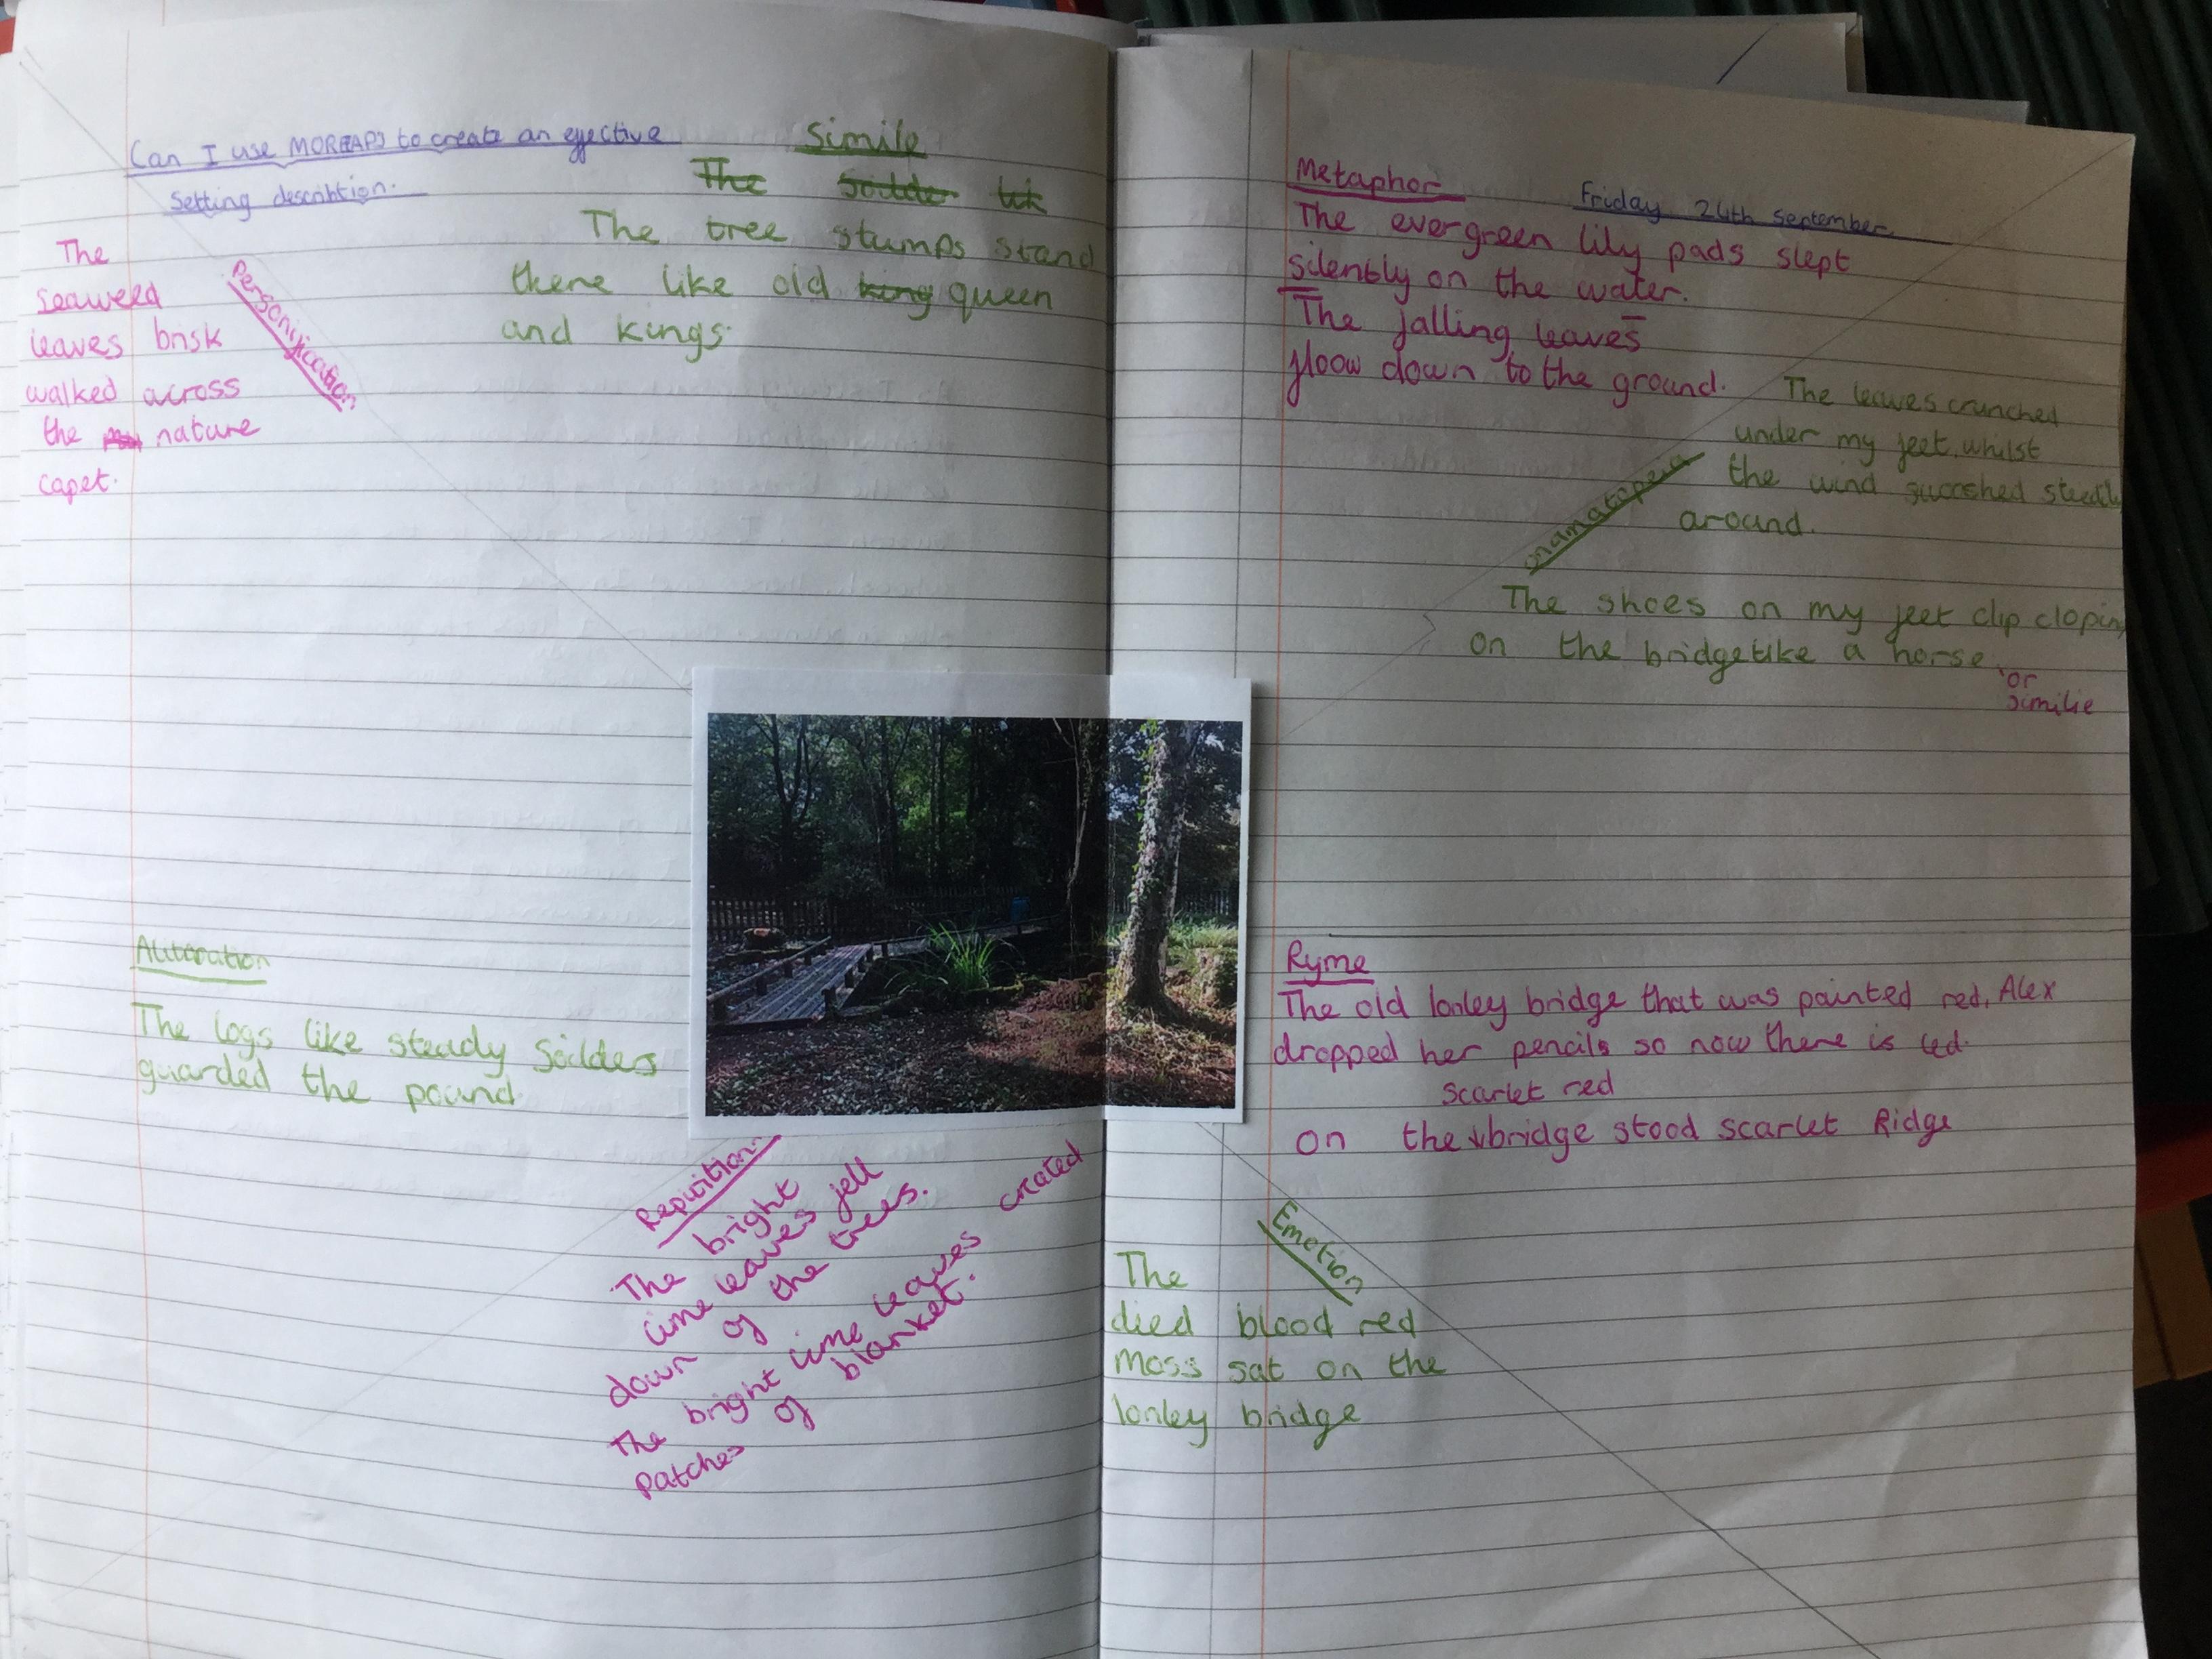 Can I use MOREAPS to create an effective
Setting describtion.
Simile
The
The tree stumps stand
there like old king queen
and kings.
Personification
The
Seaweed
leaves brisk
walked across
the nature
capet.
Metaphor
Friday 24th September
The evergreen lily pads slept
silently on the water.
The falling leaves
floow down to the ground.
onamatopeia
The leaves crunched
under my feet, whilst
the wind swooshed
around.
The shoes on my feet clip cloping
on the bridge like a horse
or
similie
Aliteration
The logs like steady Soilders
guarded the pound
Ryme
The old lonley bridge that was painted red, Alex
dropped her pencils so now there is led.
scarlet red
on the bridge stood scarlet Ridge
Repitition
The bright
lime leaves fell
down of the trees.
The bright lime leaves created
patches of blanket.
Emotion
The
died blood red
moss sat on the
lonley bridge